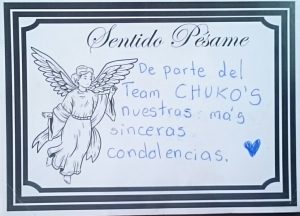 Sentido Pésame
De parte del
Team CHUKO'S
nuestras más
sinceras
condolencias.